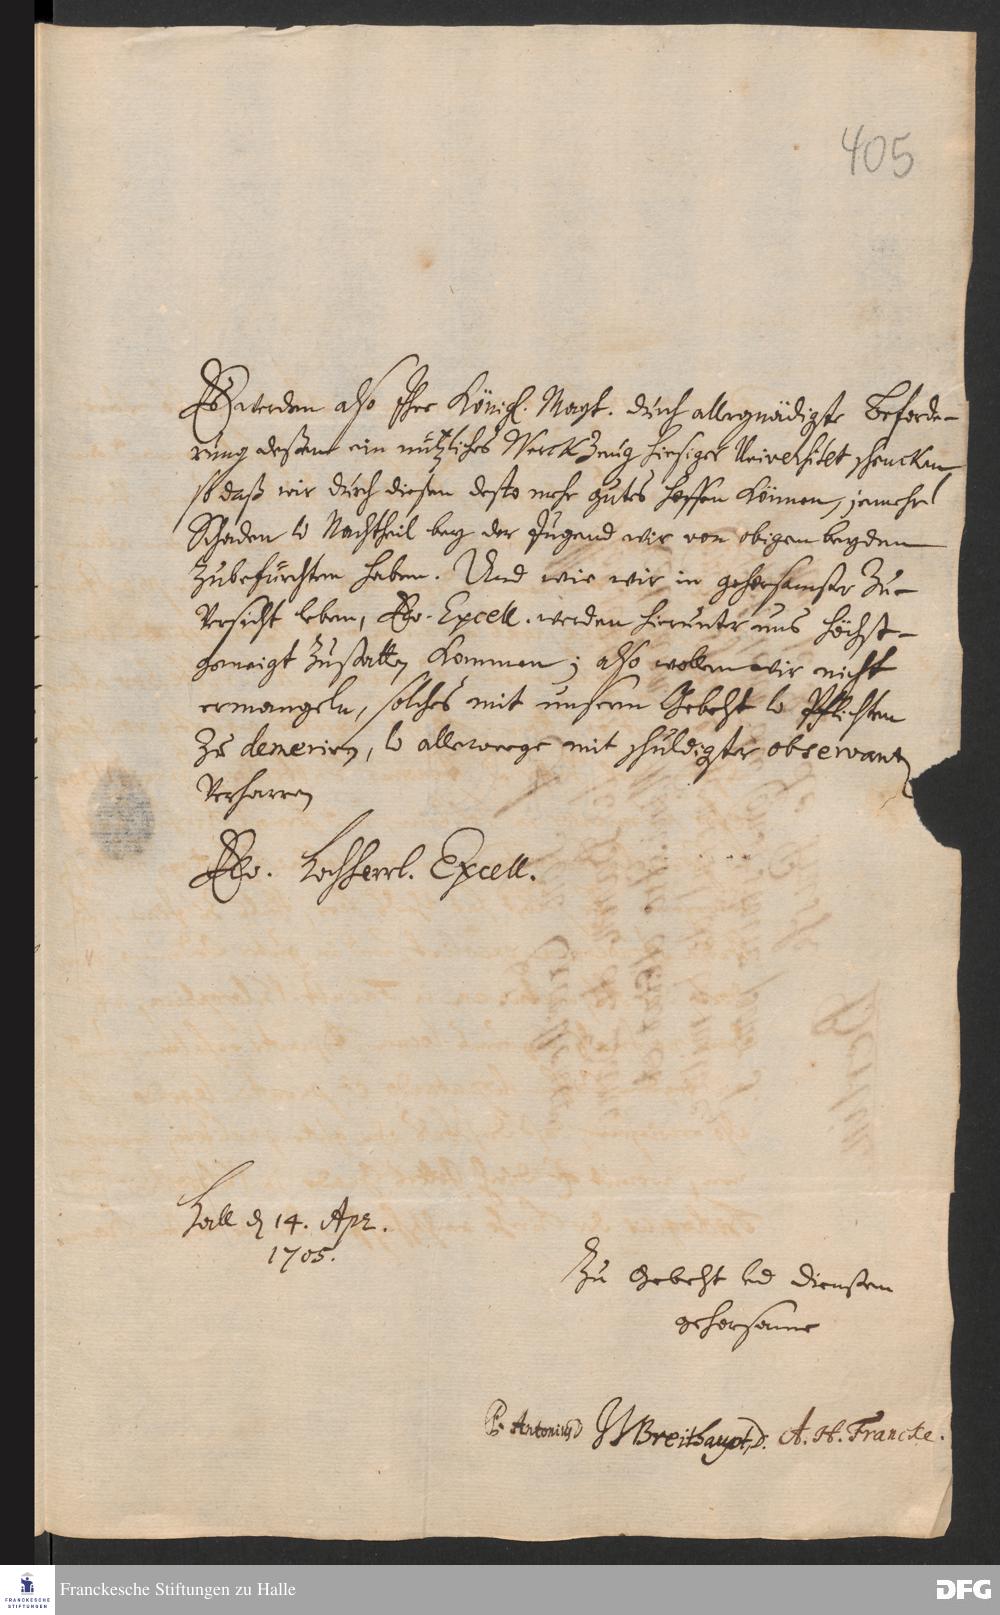 405
Es werden also Ihre Königl. Mayt. durch allergnädigste Beforde-
rung deßen ein nützliches Werckzeug hiesiger Universitet schencken
so daß wir durch diesen desto mehr gutes hoffen können, jemehr
Schaden u Nachtheil bey der Jugend wir von obigen beyden
zubefürchten haben. Und wie wir in gehorsamster Zu-
versicht leben, Ew. Excell. werden hierunter uns höchst-
geneigt zustatten kommen; also wollen wir nicht
ermangeln, solches mit unserm Gebeht u Pflichten
zu demeriren, u allewege mit schuldigster observantz
verharren
Ew. Hochherrl. Excell.
Hall d 14. Apr.
1705.
Zu Gebeht und Diensten
gehorsame
P. Antonius D JJBreithaupt, D. A. H. Francke.
Franckesche Stiftungen zu Halle
FRANCKESCHE
STIFTUNGEN
DFG